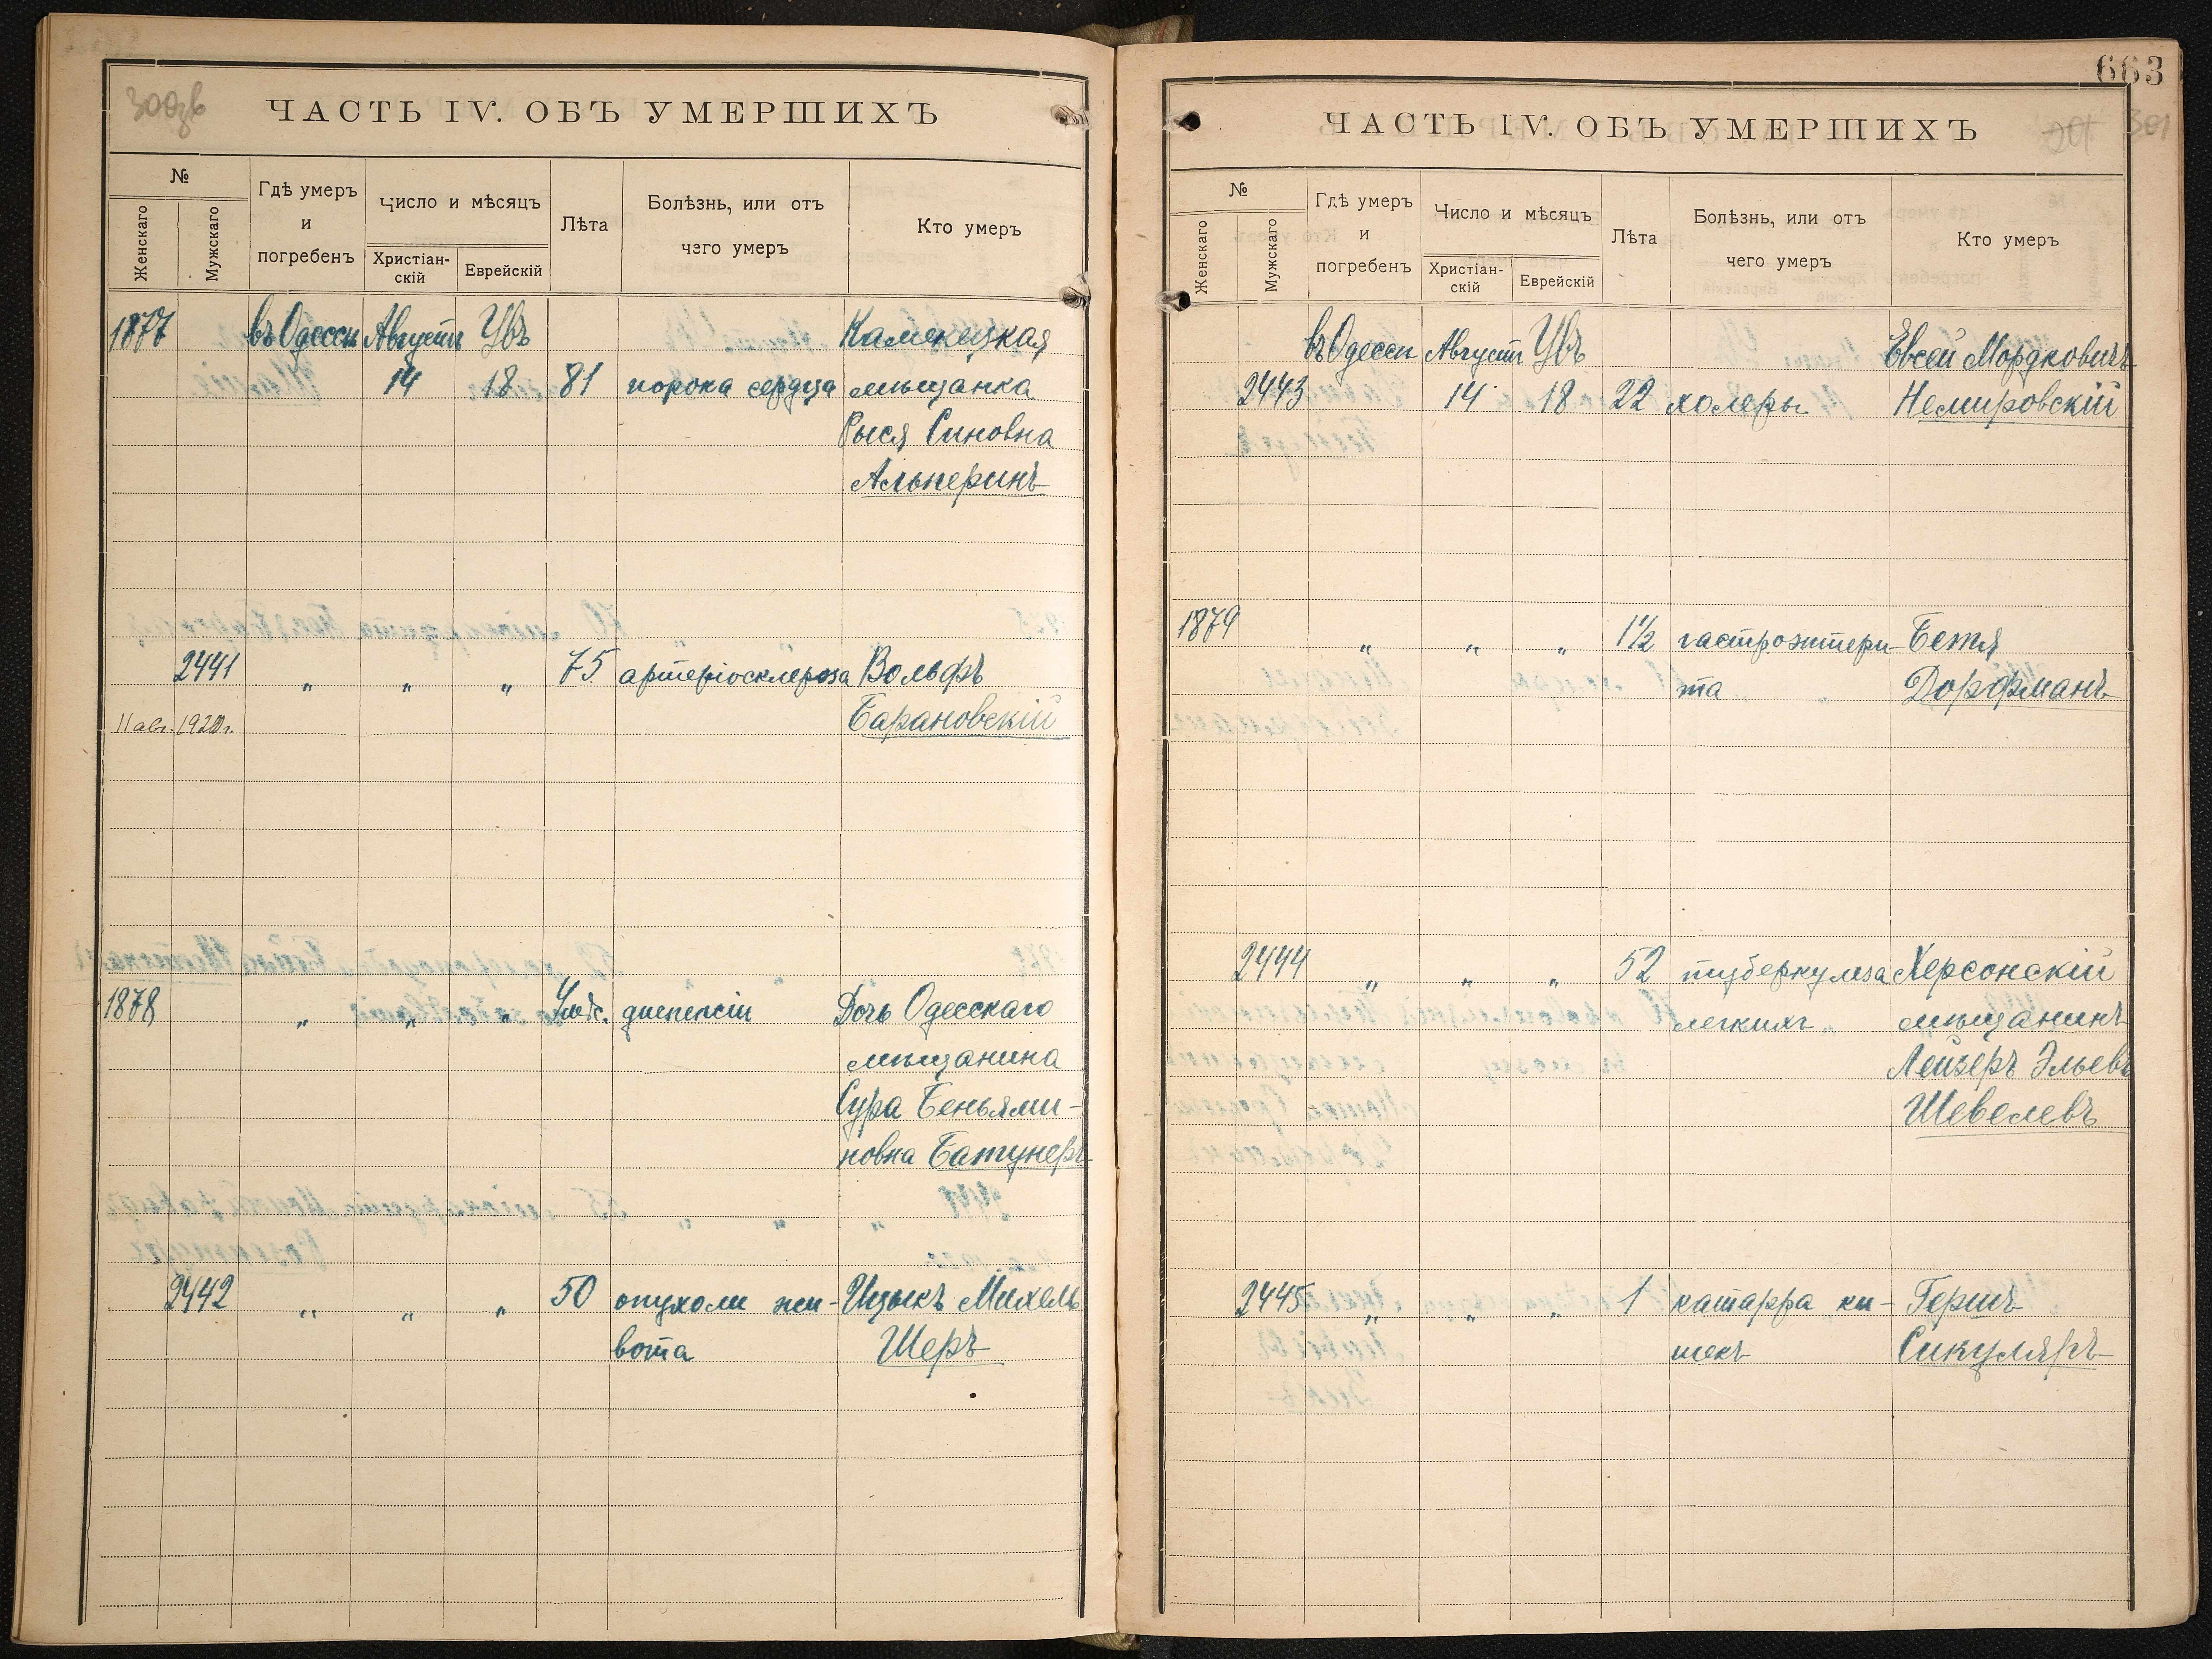 300зв
ЧАСТЬ IV. ОБЪ УМЕРШИХЪ
№
Женскаго
Мужскаго
Гдѣ умеръ
и
погребенъ
Число и мѣсяцъ
Христіан-
скій
Еврейскій
Лѣта
Болѣзнь, или отъ
чего умеръ
Кто умеръ
1877 въ Одессѣ Августъ Увъ Каменецкая
14 18 81 порока сердца мѣщанка
Рыся Синовна
Альперинъ
2441 " " " 75 артеріосклероза Вольфъ
11 авг. 1920 г. Барановскій
1878 " " " диспепсіи Дочь Одесскаго
мѣщанина
Сура Беньями-
новна Батунеръ
2442 " " " 50 опухоли жи- Ицыкъ Михель
вота Шеръ
663
301
ЧАСТЬ IV. ОБЪ УМЕРШИХЪ
№
Женскаго
Мужскаго
Гдѣ умеръ
и
погребенъ
Число и мѣсяцъ
Христіан-
скій
Еврейскій
Лѣта
Болѣзнь, или отъ
чего умеръ
Кто умеръ
въ Одессѣ Августъ Увъ Евсей Мордковичъ
2443 14 18 22 холеры Немировскій
1879 " " " 1½ гастроэнтери- Бетя
та Дорфманъ
2444 " " " 52 туберкулеза Херсонскій
легкихъ мѣщанинъ
Лейзеръ Эльевъ
Шевелевъ
2445 " " " 1 катарра ки- Гершъ
шекъ Сикуляръ